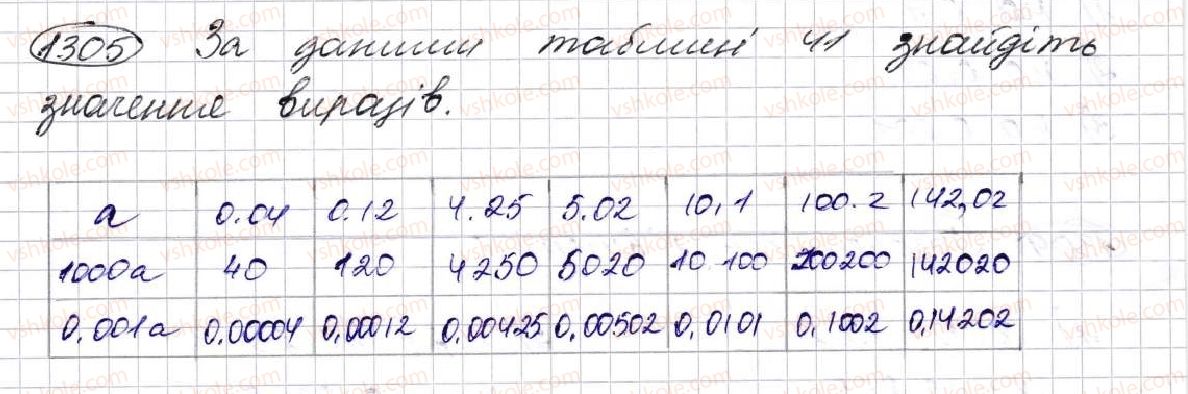 1305 За даними таблиці 41 знайдіть
значення виразів.
a 0.04 0.12 4.25 5.02 10,1 100.2 142,02
1000a 40 120 4250 5020 10 100 100200 142020
0.001a 0.00004 0,00012 0,00425 0,00502 0,0101 0,1002 0,14202